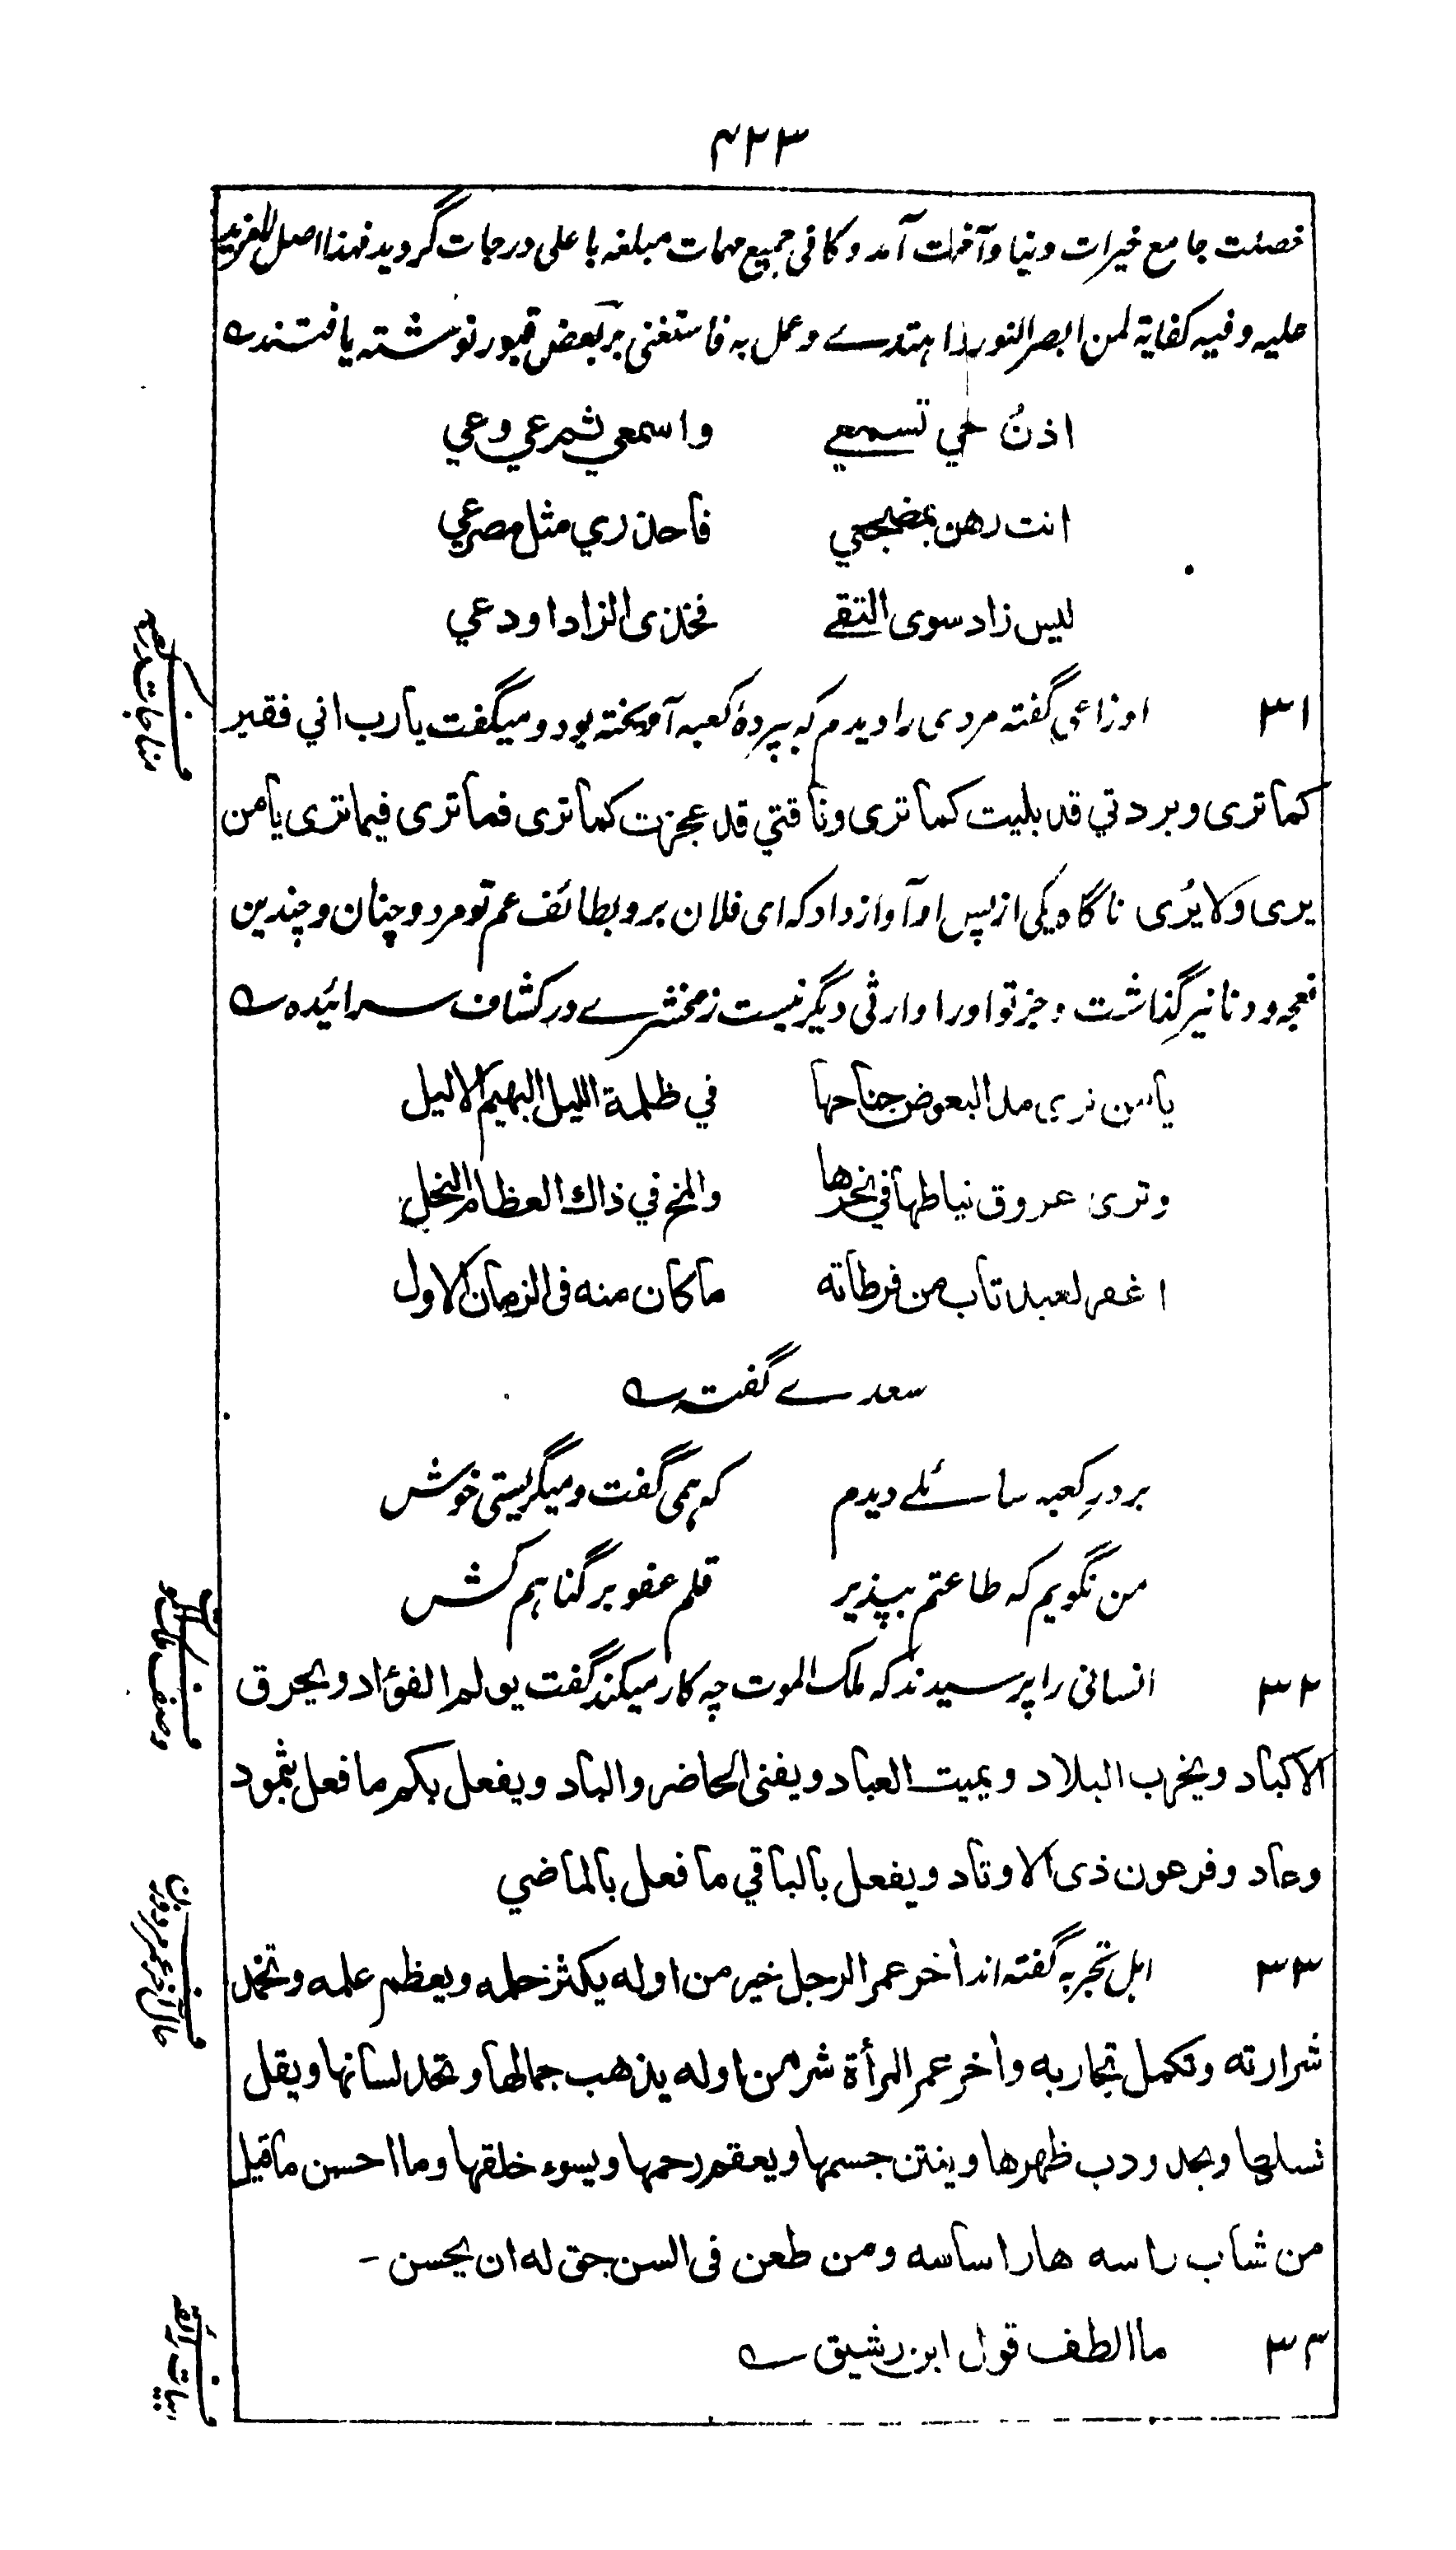 ۴۲۳
خصلت جامع خیرات دنیا وآخرت آمد و کافی جمیع مهمات مبلغه باعلی درجات گردید فهذا اصل لا مزید
علیه وفیه کفایة لمن ابصر النور واهتدے وعمل به فاستغنی بر بعض قبور نوشته یافتند
اذنُ حي تسمعي واسمعي ثم عي وعي
انت رهن بمضجعي فاحذري مثل مصرعي
ليس زاد سوى التقے فخذى الزاد اودعي
۳۱ اوزاعی گفته مردی را دیدم که بپردۀ کعبه آویخته بود و میگفت یارب اني فقیر
کما تری وبردتي قد بلیت کما تری وناقتي قد عجزت کما تری فما تری فیما تری یا من
یری ولا یُری ناگاه یکی از پس او آواز داد که ای فلان برو بطائف عم تو مرد و چنان و چندین
نعجه و دنانیر گذاشت و جز تو او را وارثی دیگر نیست زمخشرے در کشاف سرائیده
يا من يرى مد البعوض جناحها في ظلمة الليل البهيم الاليل
وترى عروق نياطها في نحرها والمخ في ذاك العظام النحل
اغفر لعبد تاب من فرطاته ما كان منه فى الزمان الاول
سعدے گفته
بر درِ کعبه سائلے دیدم که همی گفت و میگریستی خوش
من نگویم که طاعتم بپذیر قلم عفو بر گناهم کش
۳۲ انسانی را پرسیدند که ملک الموت چه کار میکند گفت یولم الفؤاد ویحرق
الاکباد ویخرب البلاد ویمیت العباد ویفنی الحاضر والباد ویفعل بکم ما فعل بثمود
وعاد وفرعون ذی الاوتاد ویفعل بالباقي ما فعل بالماضي
۳۳ اهل تجربه گفته اند آخر عمر الرجل خیر من اوله یکثر حلمه ویعظم علمه وتخمد
شرارته وتکمل تجاربه وآخر عمر المرأة شر من اوله یذهب جمالها وتحد لسانها ویقل
نسلها ویحدودب ظهرها وینتن جسمها ویعقم رحمها ویسوء خلقها وما احسن ما قیل
من شاب راسه هار اساسه ومن طعن فی السن حق له ان یحسن -
۳۴ ما الطف قول ابن رشیق
مناجات در کعبه
وصف ملک الموت
حال آخر عمر مرد و زن
ابیات رائقه